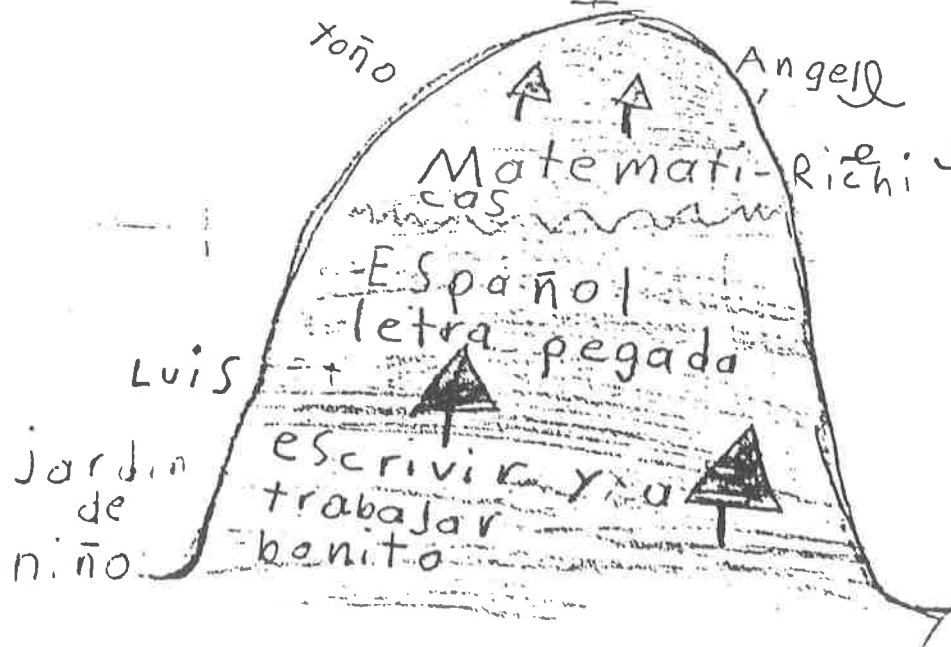 toño
Angell
Matemati-
cas
Richi
Español
letra pegada
Luis
escrivir y a
trabajar
bonito
jardin
de
niño